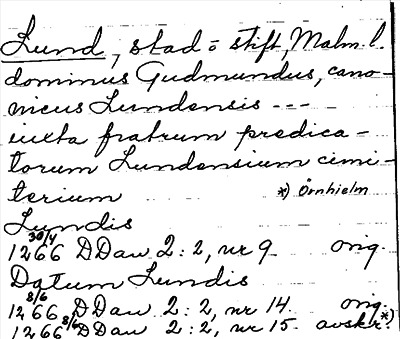 Lund, stad o stift, Malm. l.
dominus Gudmundus, cano-
nicus Lundensis ---
iuxta fratrum predica-
torum Lundensium cimi-
terium *) Örnhielm
Lundis
30/4
1266 DDan 2:2, nr 9 orig.
Datum Lundis
8/6
1266 DDan 2:2, nr 14. orig.
8/6 *)
1266 DDan 2:2, nr 15. avskr.